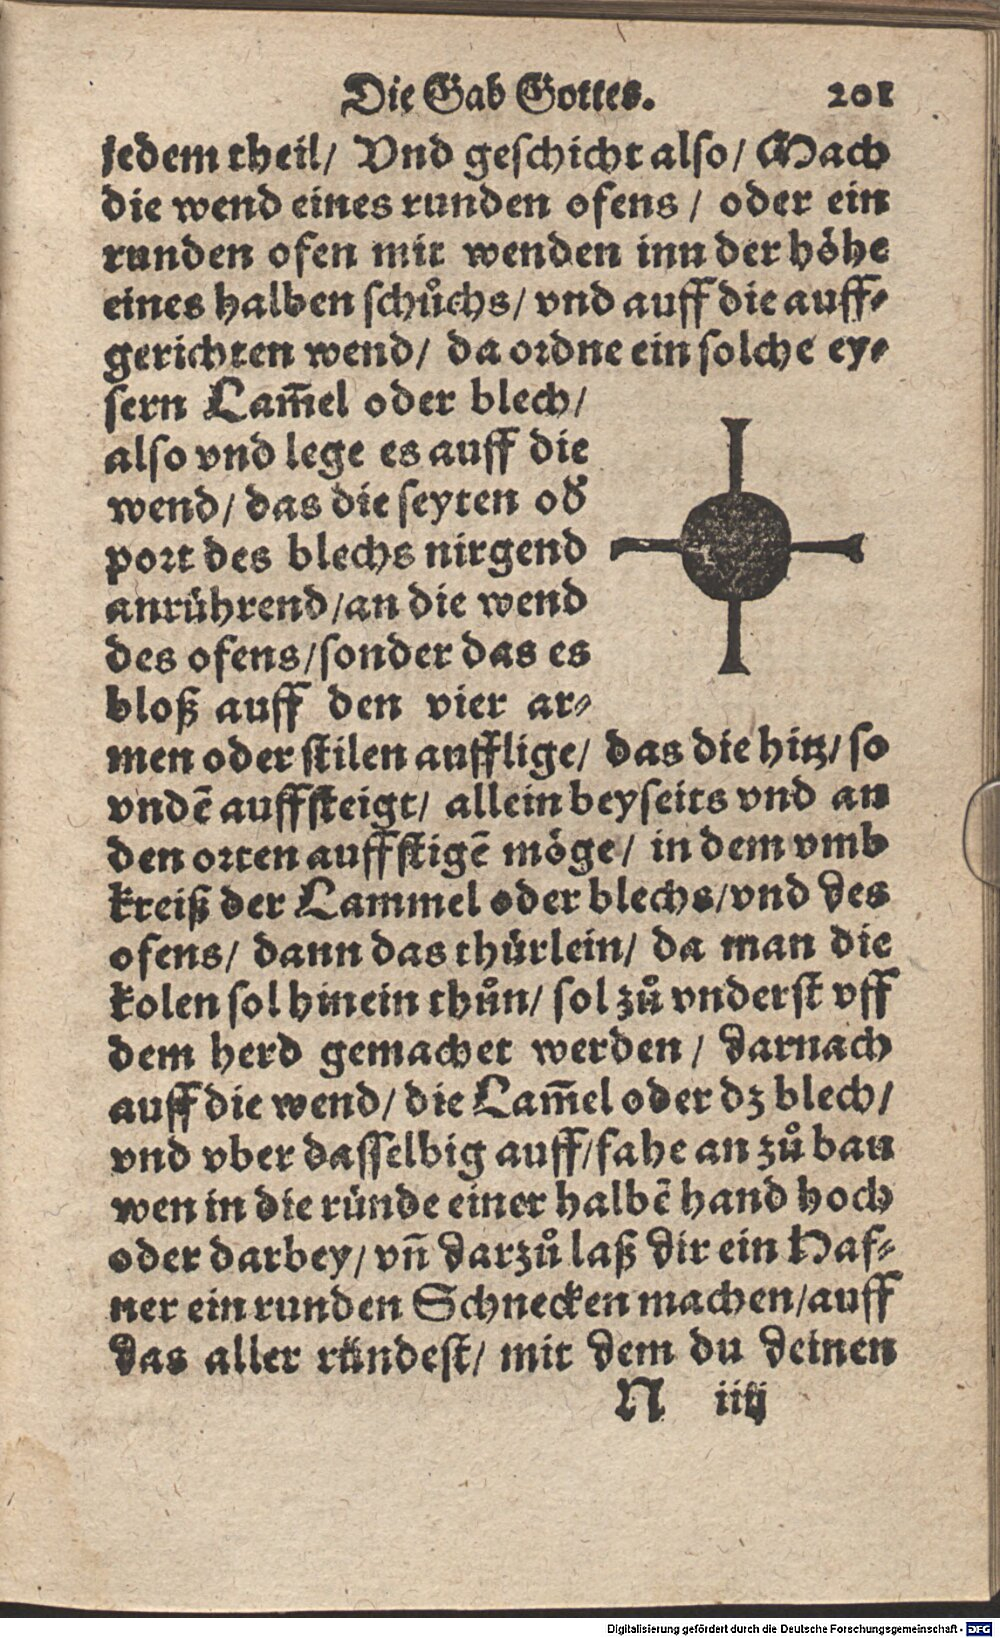 Die Gab Gottes. 201
jedem theil/ Vnd geschicht also/ Mach
die wend eines runden ofens / oder ein
runden ofen mit wenden inn der höhe
eines halben schůchs/ vnd auff die auff⸗
gerichten wend/ da ordne ein solche ey⸗
sern Lam̄el oder blech/
also vnd lege es auff die
wend/ das die seyten od̕
port des blechs nirgend
anrührend/an die wend
des ofens/sonder das es
bloß auff den vier ar⸗
men oder stilen auffflige/ das die hitz/ so
vndē auffsteigt/ allein beyseits vnd an
den orten auffstigē möge/ in dem vmb
kreiß der Lammel oder blechs/vnd des
ofens/ dann das thürlein/ da man die
kolen sol hinein thůn/ sol zů vnderst vff
dem herd gemachet werden / darnach
auff die wend/ die Lam̄el oder dz blech/
vnd vber dasselbig auff/fahe an zů bau
wen in die ründe einer halbē hand hoch
oder darbey/ vn̄ darzů laß dir ein Haf⸗
ner ein runden Schnecken machen/auff
das aller ründest/ mit dem du deinen
N iiij
Digitalisierung gefördert durch die Deutsche Forschungsgemeinschaft - DFG